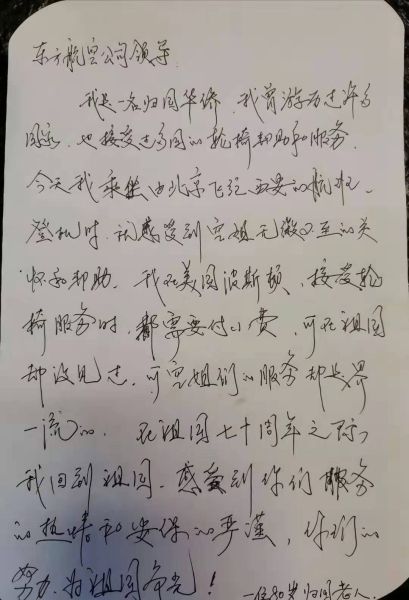 东方航空公司领导
我是一名归国华侨,我曾游历过许多
国家,也接受过多国的轮椅帮助和服务.
今天我乘坐由北京飞往西安的航班,
登机时,就感受到空姐无微不至的关
怀和帮助,我在美国波斯顿,接受轮
椅服务时,都需要付小费,可在祖国
却没见过,可空姐们的服务却是世界
一流的. 在祖国七十周年之际,
我回到祖国,感受到你们服务
的热情和安保的严谨,你们的
努力,为祖国争光!
一位80岁归国老人.